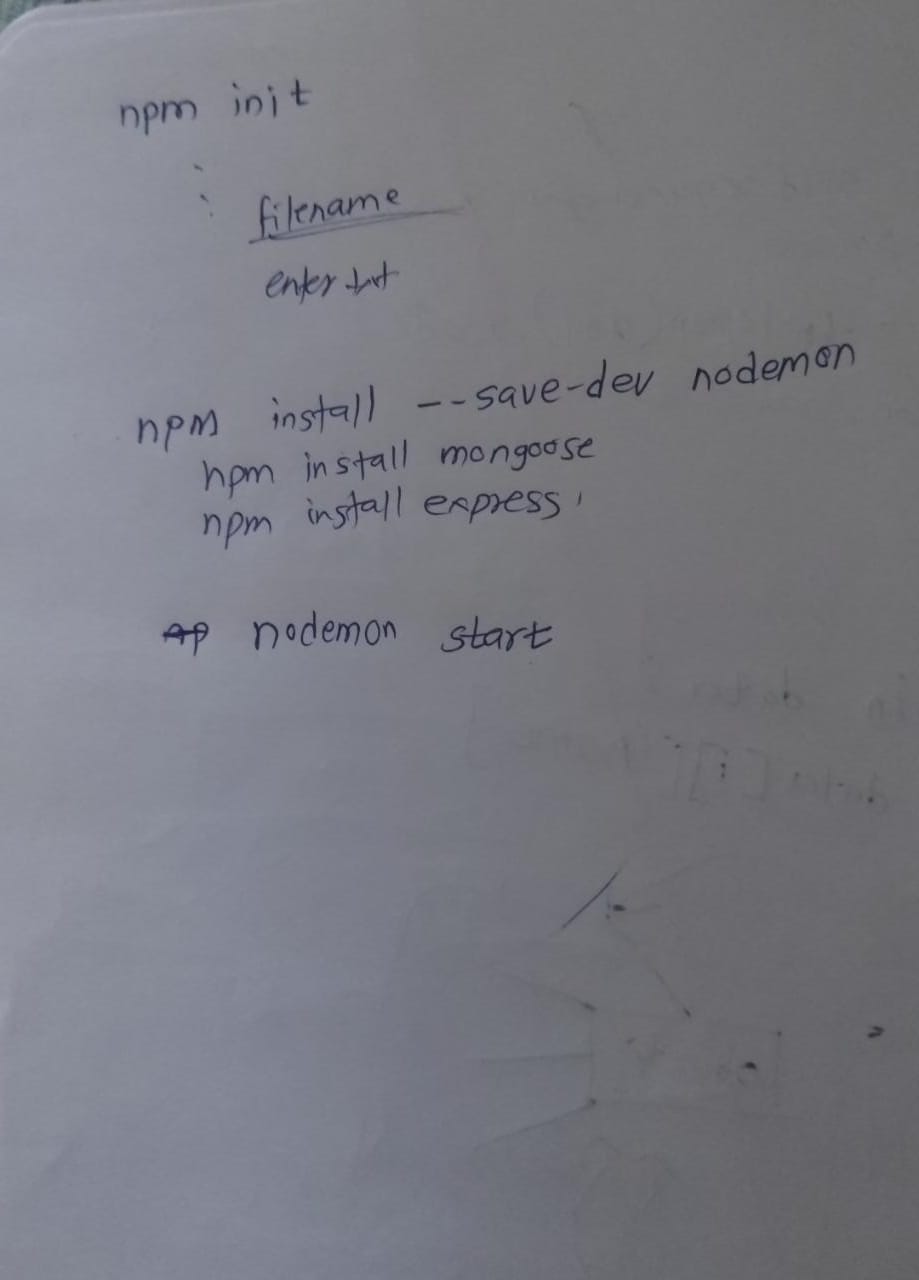 npm init
:
filename
enter
npm install --save-dev nodemon
npm install mongoose
npm install express
nodemon start